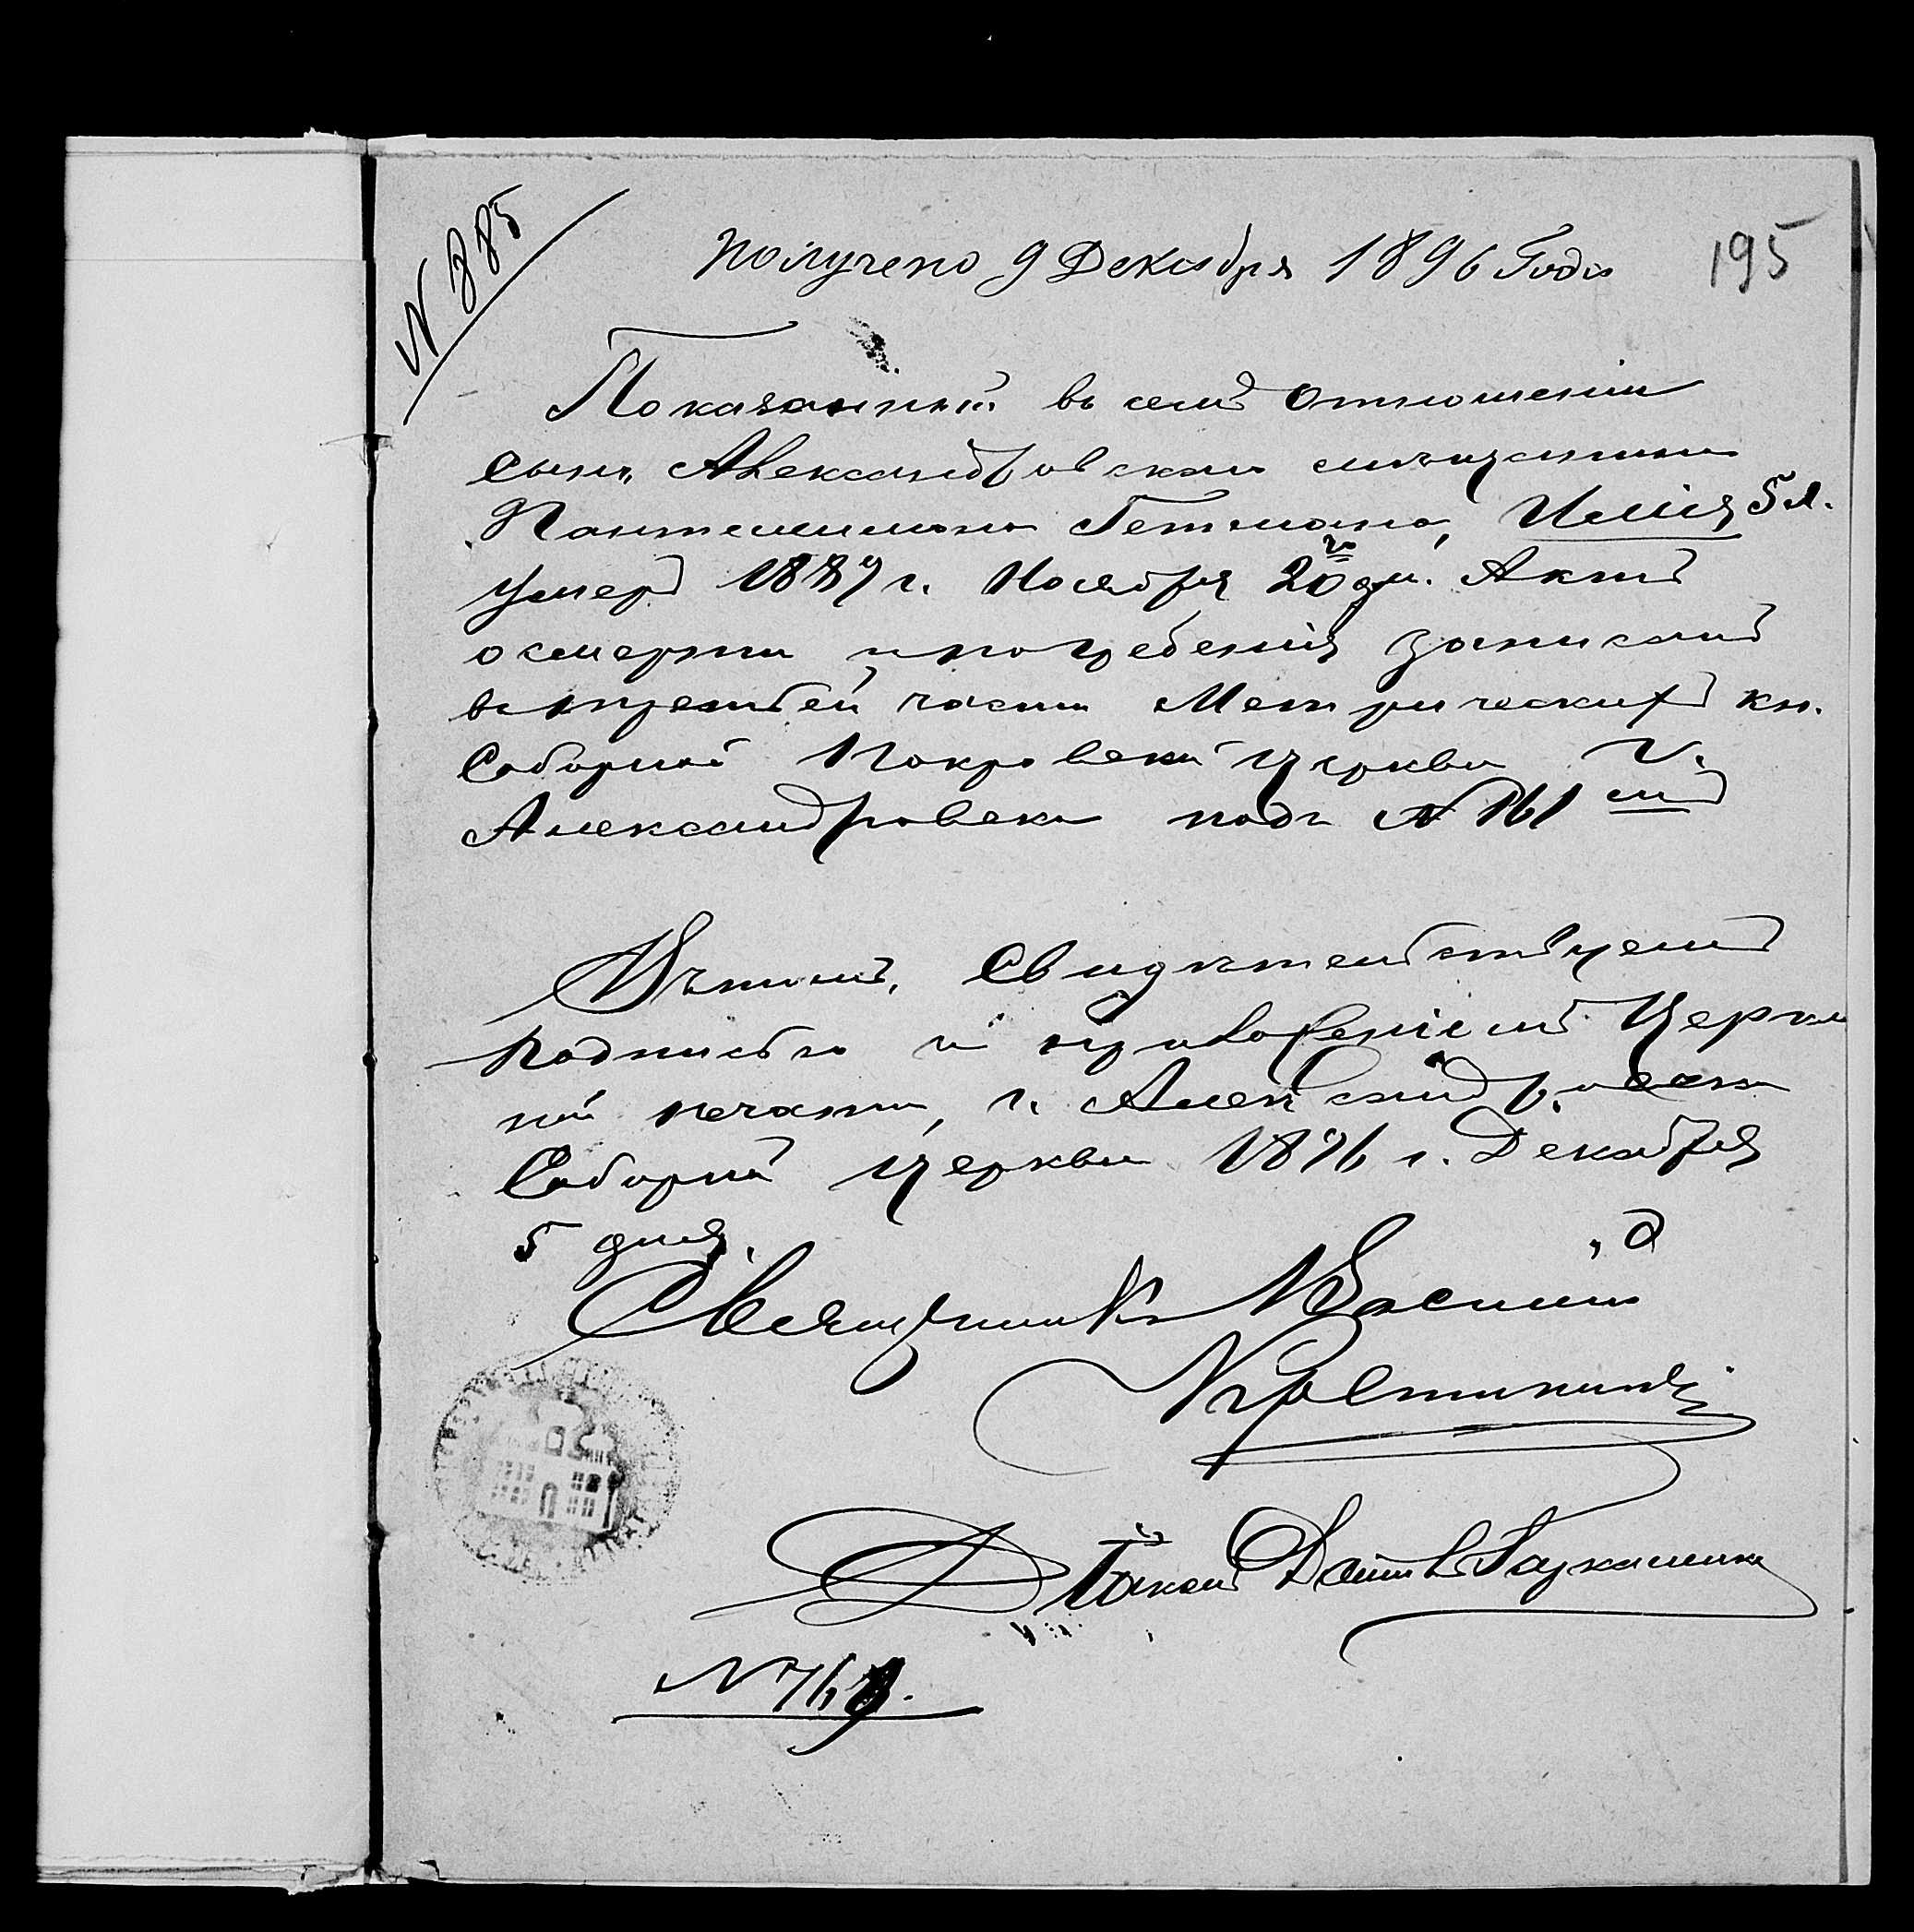 N 885
Получено 9 Декабря 1896 Года
195
Показанный въ семъ отношеніи
сынъ Александровскаго мѣщанина
Пантелиимона Гетмана, Илія 5 л.
умеръ 1889 г. Ноября 20го дн. Актъ
о смерти и погребенія записанъ
въ третьей части Метрическихъ кн.
Соборной Покровской церкви г.
Александровска подъ N 161 мъ
Въ чемъ, свидѣтельствуемъ
подписью и приложеніемъ Церков
ной печати, г. Александровска
Соборной церкви 1896 г. Декабря
5 дня.
Священникъ Василій
Діаконъ
N 769.